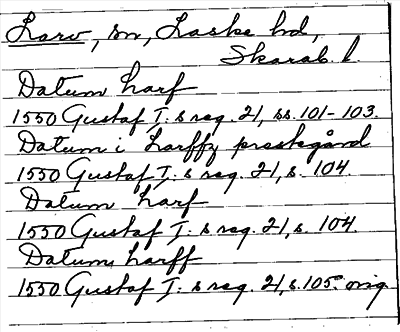 Larv, sn, Laske hd,
Skarab. l.
Datum harf
1550 Gustaf I: s reg. 21, ss. 101-103.
Datum i Larffz prestegård
1550 Gustaf I: s reg. 21, s. 104.
Datum harf
1550 Gustaf I: s reg. 21, s. 104.
Datum harff
1550 Gustaf I: s reg. 21, s. 105. orig.